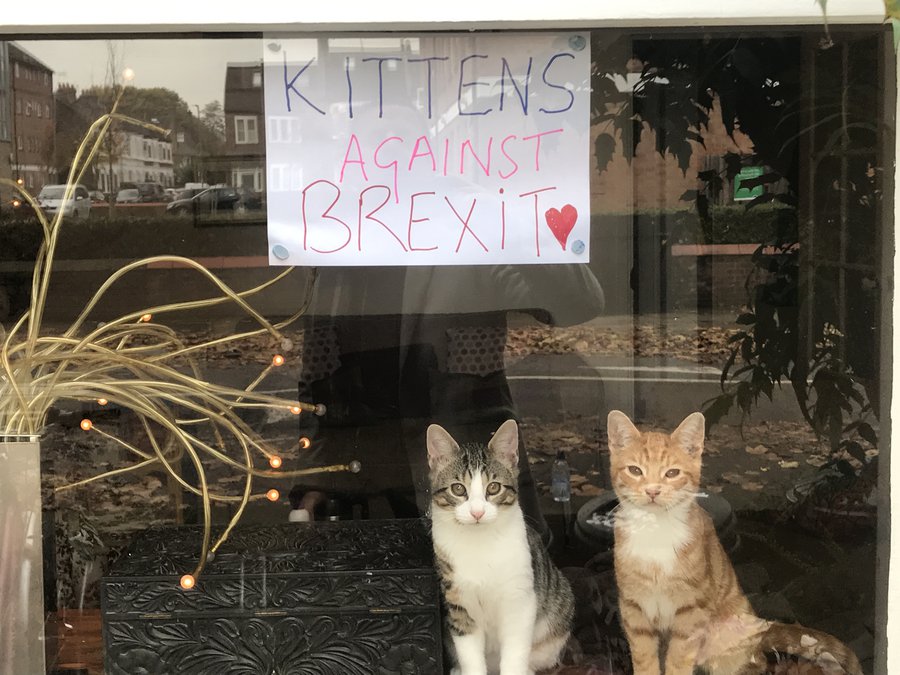 KITTENS
AGAINST
BREXIT